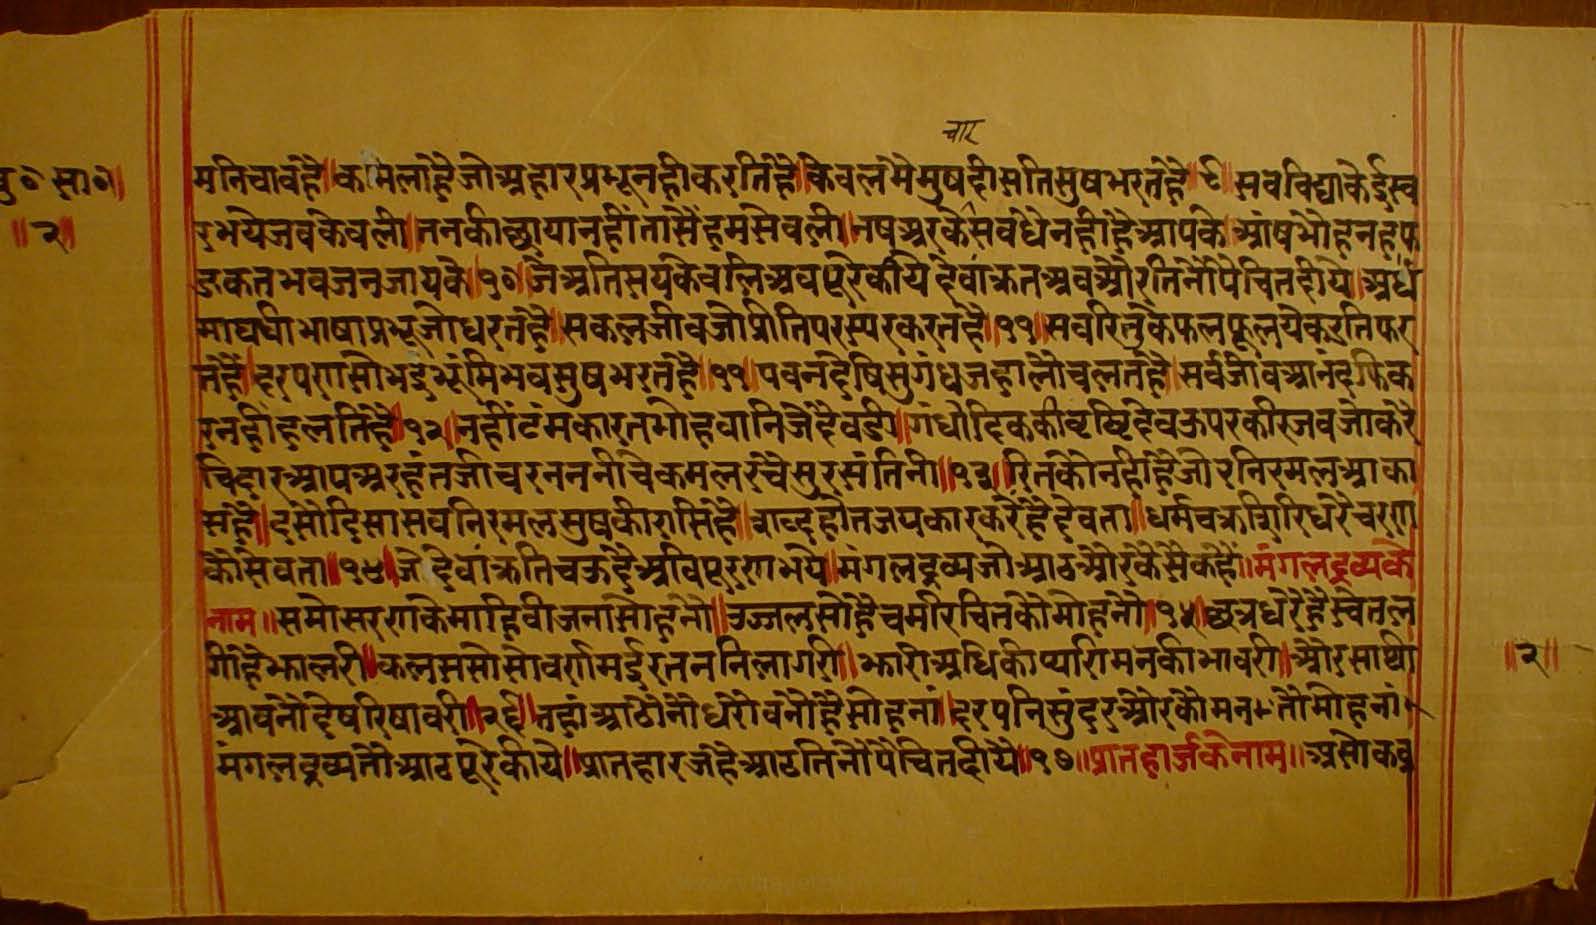 चार
बु॰ सा॰॥
॥२॥
मतिचावहै॥कमिलाहैजोअहारप्रभूनहीकरतिहै॥केवलमैमुषहीसतिसुषभरतहै॥९॥सवविद्याकेईस्व
रभयेजवकेवली॥तनकीछायानहींतासैंहमसेवली॥नषअरकेसवधैनहीहैआपके॥आंषभौहनहफ
डकतभवजनजायके॥१०॥जेअतिसयकेवलिअवपूरेकीये देवांक्रतअवऔरतिनौपैचितदीये॥अर्ध
माघधीभाषाप्रभूजोधरतहै॥सकलजीवजोप्रीतिपरस्परकरतहै॥११॥सवरितुकेफलफूलयेकरतिफरा
तहैं॥हरपणसोभईभूंमिभवसुषभरतहै॥११॥पवनहैषिसुगंधजहालौचलतहै॥सर्वजीवआनंदफिक
रनहीहलतिहै॥१२॥नहींटंमकारतमोहवानिजैहैवडी॥गधोदिककीवृष्टिदेवऊपरकीरजवजोकरे
विहारआपअरहंतजीचरनननीचेकमलरंचैसुरसंतिनी॥१३॥रितकोनहीहैजोरनिरमलआका
सहै॥दसौदिसासवनिरमलसुषकीरासिहै॥शब्दहोतजयकारकरेंहैंदेवता॥धर्मचक्रशिरिधरैचरण
कौसेवता॥१४॥जेदेवांक्रतिचऊदैअविपूरणभये॥मंगलद्रव्यजोआठऔरकेसैकहै॥मंगलद्रव्यके
नाम॥समोसरणकेमाहिवीजनासोहनो॥उज्जलसोहैचमरिचितकौमोहनौ॥१५॥छत्रधरेहैस्वेतल
गीहैझालरी॥कलससोसोवर्णमईरतननिलागरी॥झारीअधिकीप्यारीमनकीभावरी॥औरसाथी
आवनौदेषरिषावरी॥१६॥तहांआठौंनौधरोवनौहैसोहनां॥हरपनिसुंदरऔरकौमनतौमोहनां
मंगलद्रव्यतौआठपूरेकीये॥प्रातहारजहैआठतिनौपैचितदीये॥१७॥प्रातहार्जकेनाम॥असोकवृ
॥२॥